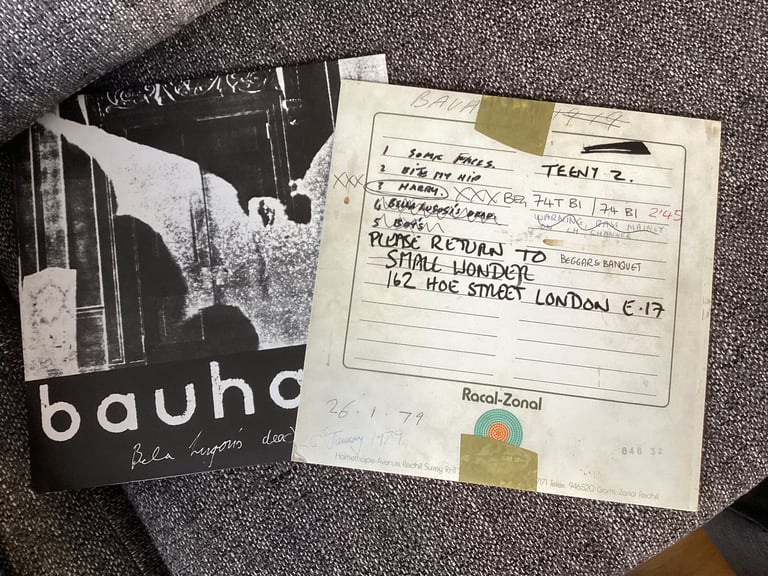 bauha
Bela Lugosi's dead
BAUHA 1979
1 SOME FACES.
2 BITE MY HIP
3 HARRY. XXX BEG
XXX
4 BELA LUGOSI'S DEAD.
5 BOYS
TEENY 2.
74T B1 | 74 B1 2'45
WARNING, GAIN MAINLY
ON LH CHANNEL
PLEASE RETURN TO BEGGARS BANQUET
SMALL WONDER
162 HOE STREET LONDON E.17
Racal-Zonal
26.1.79
January 1979.
848 32
Holmethorpe Avenue, Redhill, Surrey RH1
Telex 946520 Grams Zonal Redhill